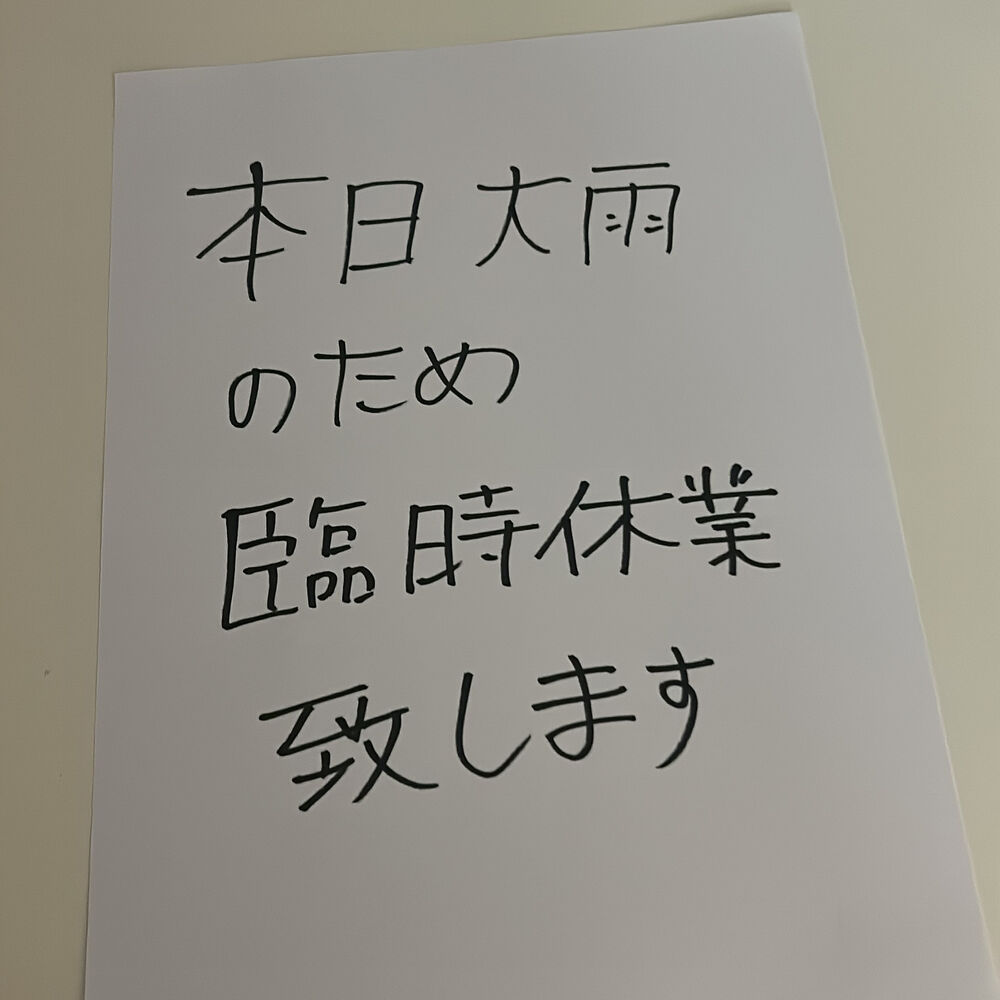 本日大雨
のため
臨時休業
致します